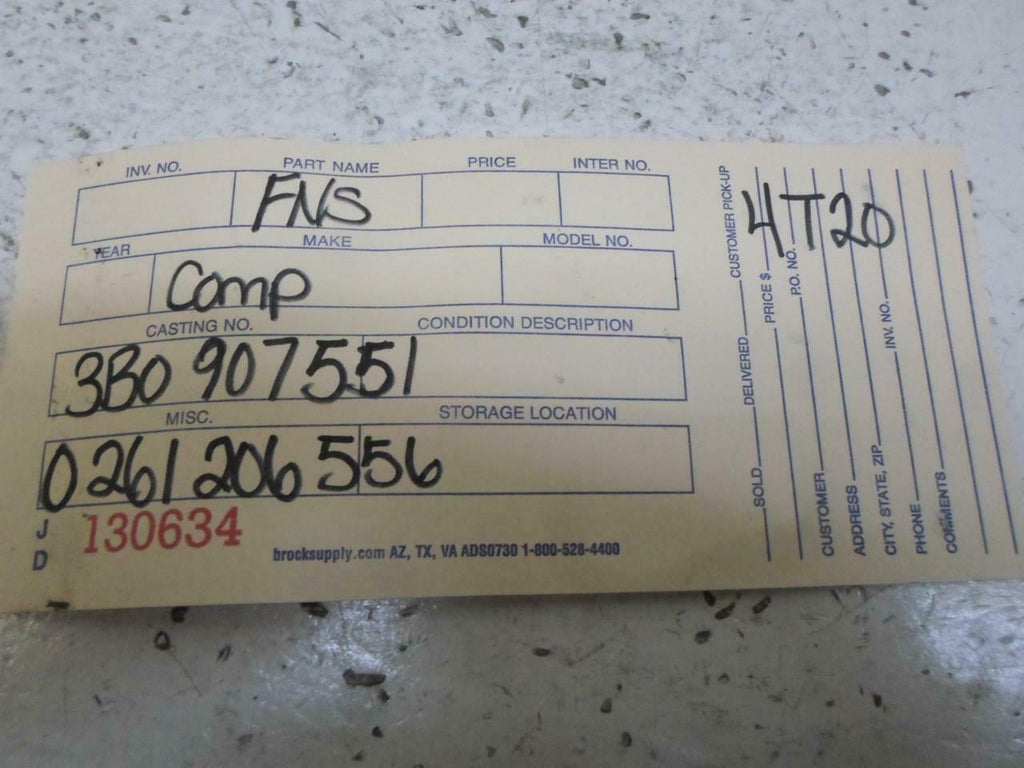 INV. NO. PART NAME PRICE INTER NO.
FNS
YEAR MAKE MODEL NO.
Comp
CASTING NO. CONDITION DESCRIPTION
3B0 907551
MISC. STORAGE LOCATION
0 261 206 556
J
D
130634
brocksupply.com AZ, TX, VA ADS0730 1-800-528-4400
4T20
SOLD DELIVERED CUSTOMER PICK-UP
PRICE $
P.O. NO.
CUSTOMER
ADDRESS
CITY, STATE, ZIP INV. NO.
PHONE
COMMENTS